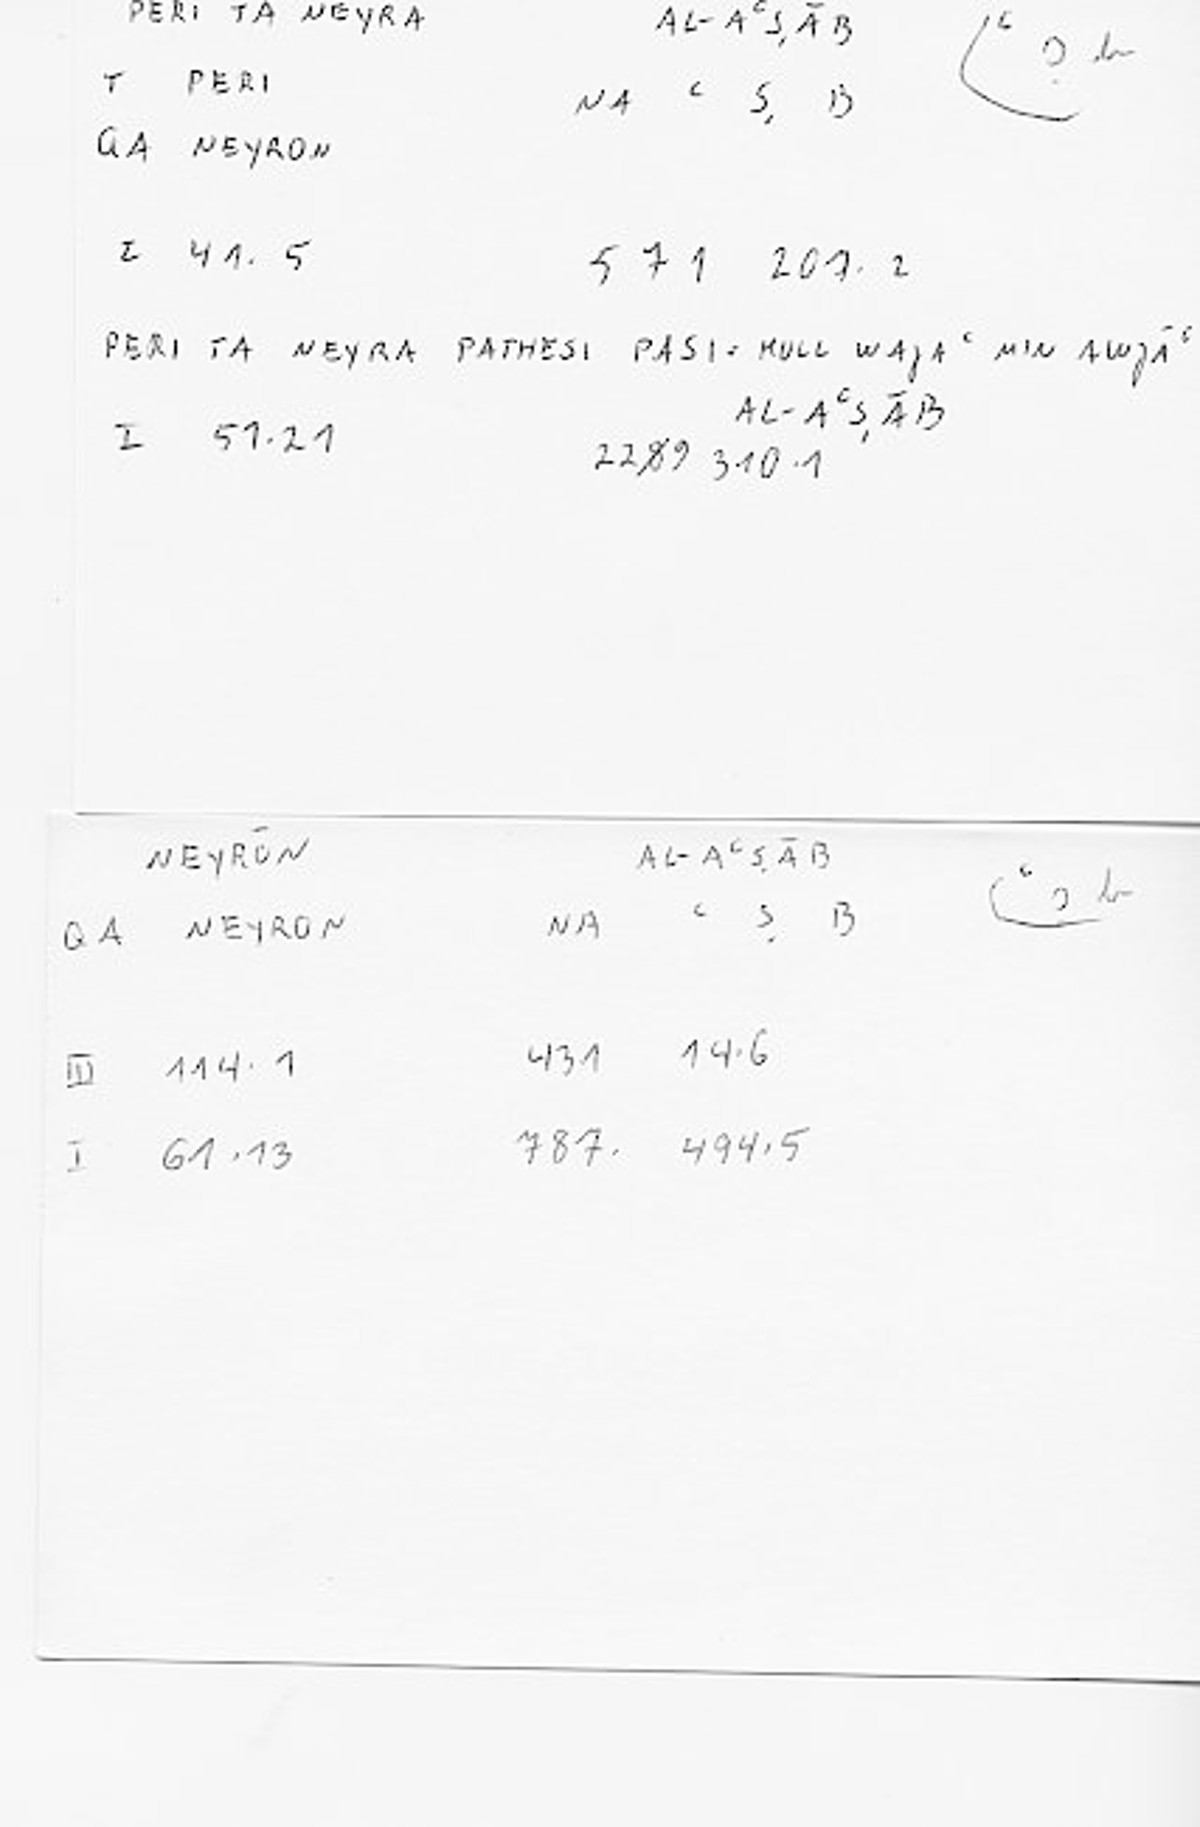 PERI TA NEYRA AL-AʿṢĀB
T PERI NA ʿ Ṣ B
QA NEYRON
I 41.5 571 201.2
PERI TA NEYRA PATHESI PASI: KULL WAJAʿ MIN AWJĀʿ
AL-AʿṢĀB
I 51.21 2289 310.1
NEYRŌN AL-AʿṢĀB
QA NEYRON NA ʿ Ṣ B
III 114.1 431 14.6
I 61.13 787. 494.5